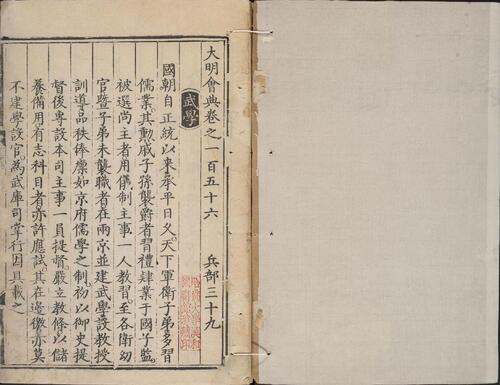 大明會典卷之一百五十六 兵部三十九
武學
國朝自正統以來承平日久天下軍衛子弟多習
儒業其勳戚子孫襲爵者習禮肄業于國子監
被選尚主者用儀制主事一人教習至各衛幼
官暨子弟未襲職者在兩京並建武學設教授
訓導品秩俸廩如京府儒學之制初以御史提
督後專設本司主事一員提督嚴立教條以儲
養備用有志科目者亦許應試其在邊徼亦莫
不建學設官為武庫司掌行因具載之